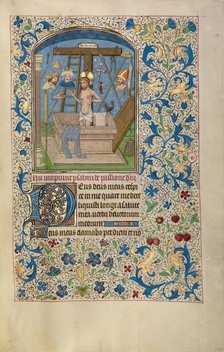 Hic incipiunt psalmi de passione dni
Deus deus meus respi
ce in me quare me dere
liquisti longe a salute
mea. verba delictorum
meorum
Deus meus clamabo per diem et no